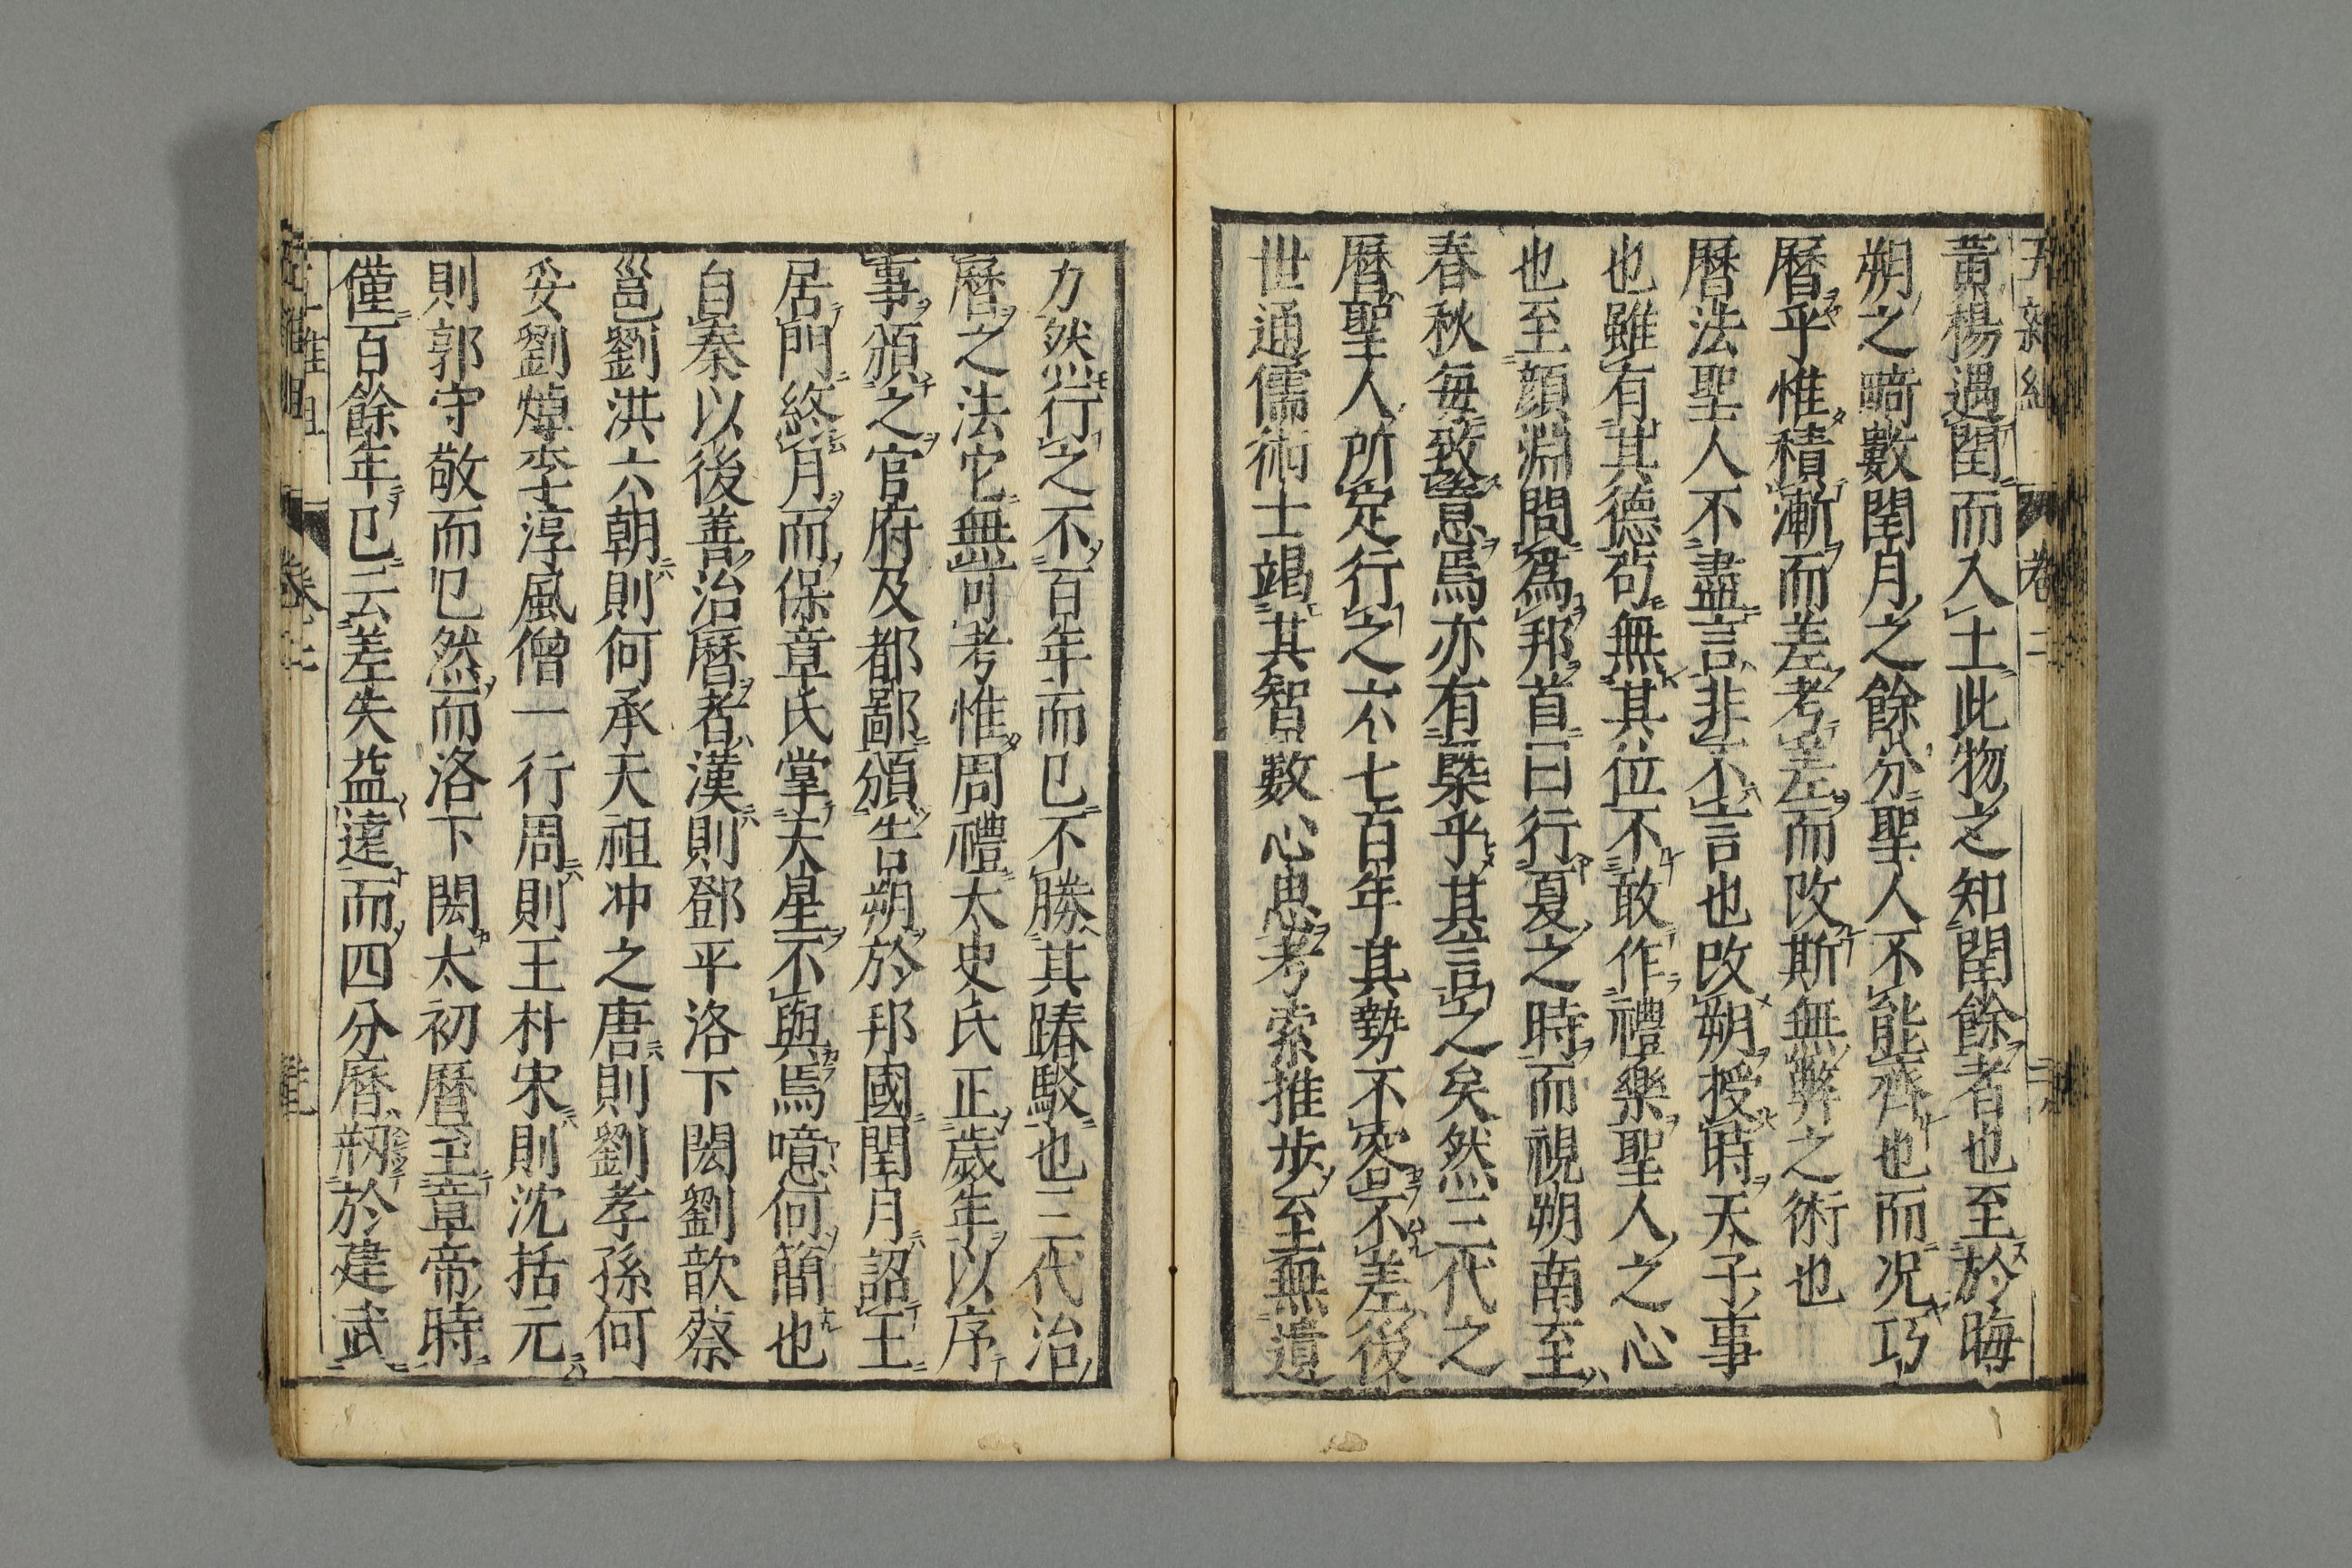 黃楊遇閏而入土此物之知閏餘者也至於晦
朔之畸數閏月之餘分聖人不能齊也而况巧
曆乎惟積漸而差考差而改斯無弊之術也
曆法聖人不盡言非不言也改朔授時天子事
也雖有其德苟無其位不敢作禮樂聖人之心
也至顔淵問爲邦首曰行夏之時而視朔南至
春秋每致意焉亦有槩乎其言之矣然三代之
曆聖人所定行之六七百年其勢不容不差後
世通儒術士竭其智數心思考索推步至無遺
力然行之不百年而已不勝其踳駁也三代治
曆之法它無可考惟周禮太史氏正歲年以序
事頒之官府及都鄙頒告朔於邦國閏月詔王
居門終月而保章氏掌天星不與焉噫何簡也
自秦以後善治曆者漢則鄧平洛下閎劉歆蔡
邕劉洪六朝則何承天祖冲之唐則劉孝孫何
妥劉焯李淳風僧一行周則王朴宋則沈括元
則郭守敬而已然而洛下閎太初曆至章帝時
僅百餘年已云差失益遠而四分曆剏於建武
卷二